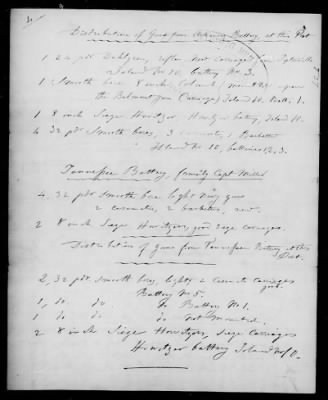 Distribution of Guns from Arkansas Battery, at this Post
1 24 pdr Dahlgren, rifle, new carriage, from
Island No 10, battery No. 3.
1 Smooth bore 8 inch Columb
the Belmont gun Carriage) Island 10. Batt. 1.
1 8 inch Siege Howitzer Howitzer battery, Island 10.
4 32 pdr Smooth bores, 3 1 Barbette
Island No 10, batteries 1, 2, 3.
Tennessee Battery, formerly Capt Miller
4, 32 pdr smooth bore light navy guns
2 casemates, 2 barbettes, new.
2 8 inch Siege Howitzers, good siege carriages.
Distribution of guns from Tennessee Battery at this
Post.
2, 32 pdr smooth bores, lights, 2 Casemate Carriages
good.
Battery No 5.
1, do do do Battery No 1.
1 do do do not mounted.
2 8 inch Siege Howitzers, siege carriages
Howitzer battery Island No 10.